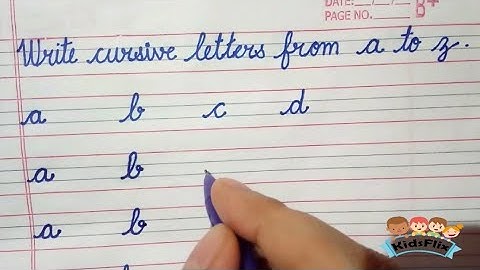 DATE:__/__/__
PAGE NO.____ B+
Write cursive letters from a to z.
a b c d
a b
a b
KidsFlix